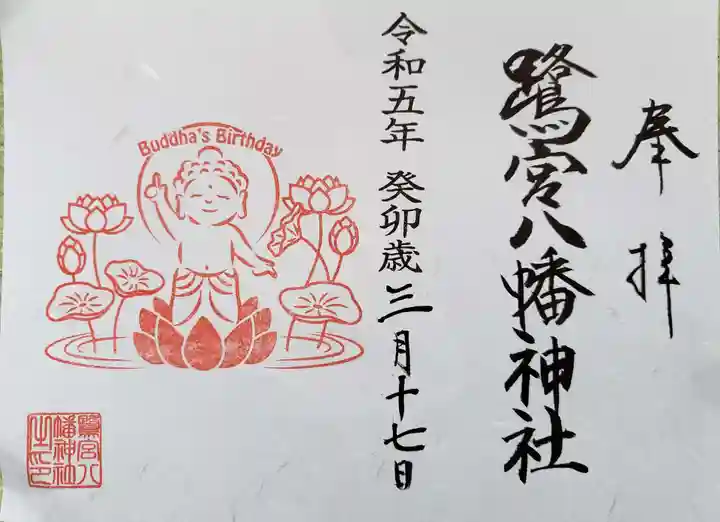 奉拝
鷺宮八幡神社
令和五年 癸卯歳 三月十七日
Buddha's Birthday
鷺宮八
幡神社
之印